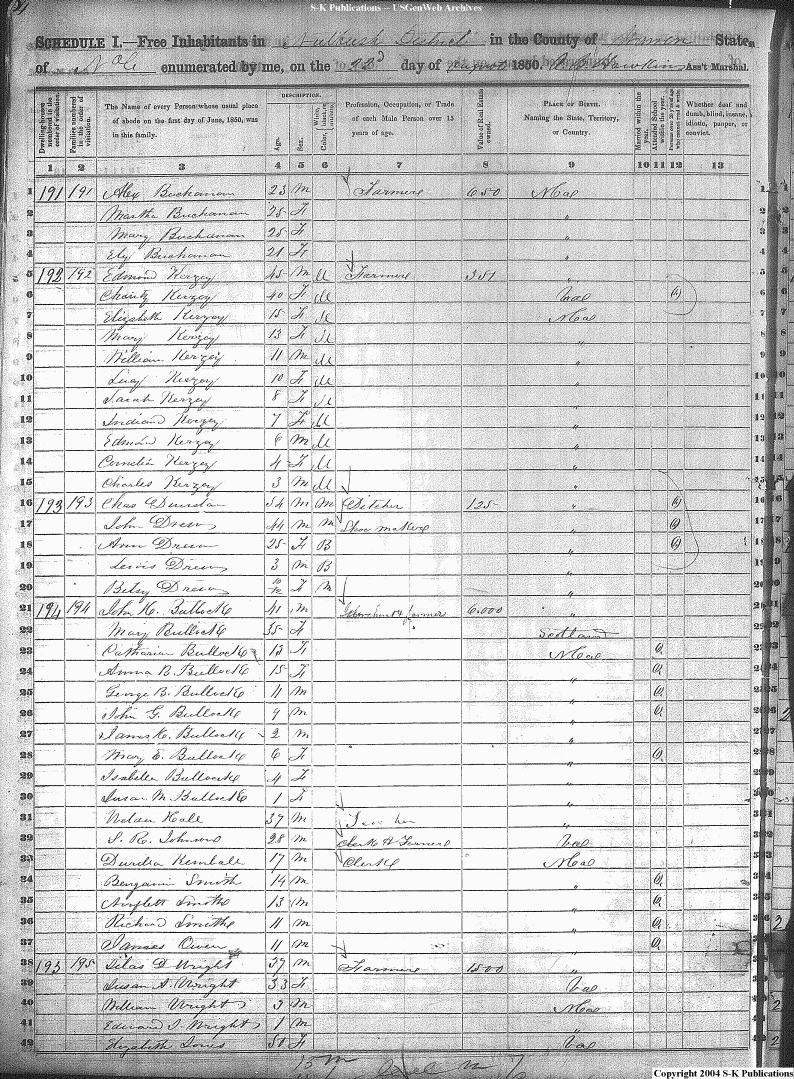 S-K Publications – USGenWeb Archives
SCHEDULE I.—Free Inhabitants in Nutbush District in the County of State
of N Ca enumerated by me, on the 22d day of August 1850. Hawkins Ass't Marshal.
Dwelling-houses numbered in the order of visitation.
Families numbered in the order of visitation.
The Name of every Person whose usual place of abode on the first day of June, 1850, was in this family.
DESCRIPTION.
Age.
Sex.
White, black, or mulatto.
Color,
Profession, Occupation, or Trade of each Male Person over 15 years of age.
Value of Real Estate owned.
PLACE OF BIRTH.
Naming the State, Territory, or Country.
Married within the year.
Attended School within the year.
Whether deaf and dumb, blind, insane, idiotic, pauper, or convict.
1 2 3 4 5 6 7 8 9 10 11 12 13
1 191 191 Alex Buchanan 23 M Farmer 650 N Ca 1
2 Martha Buchanan 25 F " 2
3 Mary Buchanan 25 F " 3
4 Ely Buchanan 21 F " 4
5 192 192 Edmond Kerzey 45 M M Farmer 351 " 5
6 Charity Kerzey 40 F M Va (1) 6
7 Elizabeth Kerzey 15 F M N Ca 7
8 Mary Kerzey 13 F M " 8
9 William Kerzey 11 M M " 9
10 Lucy Kerzey 10 F M " 10
11 Sarah Kerzey 8 F M " 11
12 Indiana Kerzey 7 F M " 12
13 Edmond Kerzey 6 M M " 13
14 Cornelia Kerzey 4 F M " 14
15 Charles Kerzey 3 M M " 15
16 193 193 Chas 54 M M Ditcher 125 " (1) 16
17 John Drew 44 M M Shoe maker " (1) 17
18 Ann Drew 25 F B " (1) 18
19 Lewis Drew 3 M B " 19
20 Betsy Drew 10/12 F M " 20
21 194 194 John H. Bullock 41 M & farmer 6.000 " 21
22 Mary Bullock 35 F Scotland 22
23 Catharine Bullock 13 F N Ca 1 23
24 Anna B. Bullock 15 F " 1 24
25 George B. Bullock 11 M " 1 25
26 John G. Bullock 9 M " 1 26
27 James K. Bullock 2 M " 27
28 Mary E. Bullock 6 F " 1 28
29 Isabella Bullock 4 F " 29
30 Susan M. Bullock 1 F " 30
31 Hall 37 M Teacher " 31
32 S. R. Johnson 28 M Clerk & Farmer Va 32
33 Kimball 17 M Clerk N Ca 33
34 Benjamin Smith 14 M " 1 34
35 Smith 13 M " 1 35
36 Richard Smith 11 M " 1 36
37 James Owen 11 M " 1 37
38 195 195 Silas D Wright 37 M Farmer 1500 " 38
39 Susan A. Wright 33 F Va 39
40 William Wright 3 M N Ca 40
41 Edward J. Wright 1 M " 41
42 Elizabeth Jones 50 F Va 42
15 M
Copyright 2004 S-K Publications